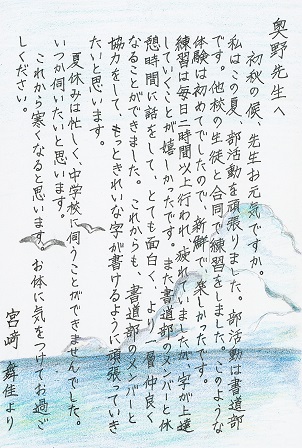 奥野先生へ
初秋の候、先生お元気ですか。
私はこの夏、部活動を頑張りました。部活動は書道部
です。他校の生徒と合同で練習をしました。このような
体験は初めてでしたので、新鮮で楽しかったです。
練習は毎日二時間以上行われ、疲れていましたが、字が上達
していくことが嬉しかったです。また書道部のメンバーと休
憩時間に話をして、とても面白く、より一層仲良く
なることができました。これからも、書道部のメンバーと
協力をして、もっときれいな字が書けるように頑張っていき
たいと思います。
夏休みは忙しく、中学校に伺うことができませんでした。
いつか伺いたいと思います。
これから寒くなると思います。お体に気をつけてお過ご
しください。
宮崎 舞佳より